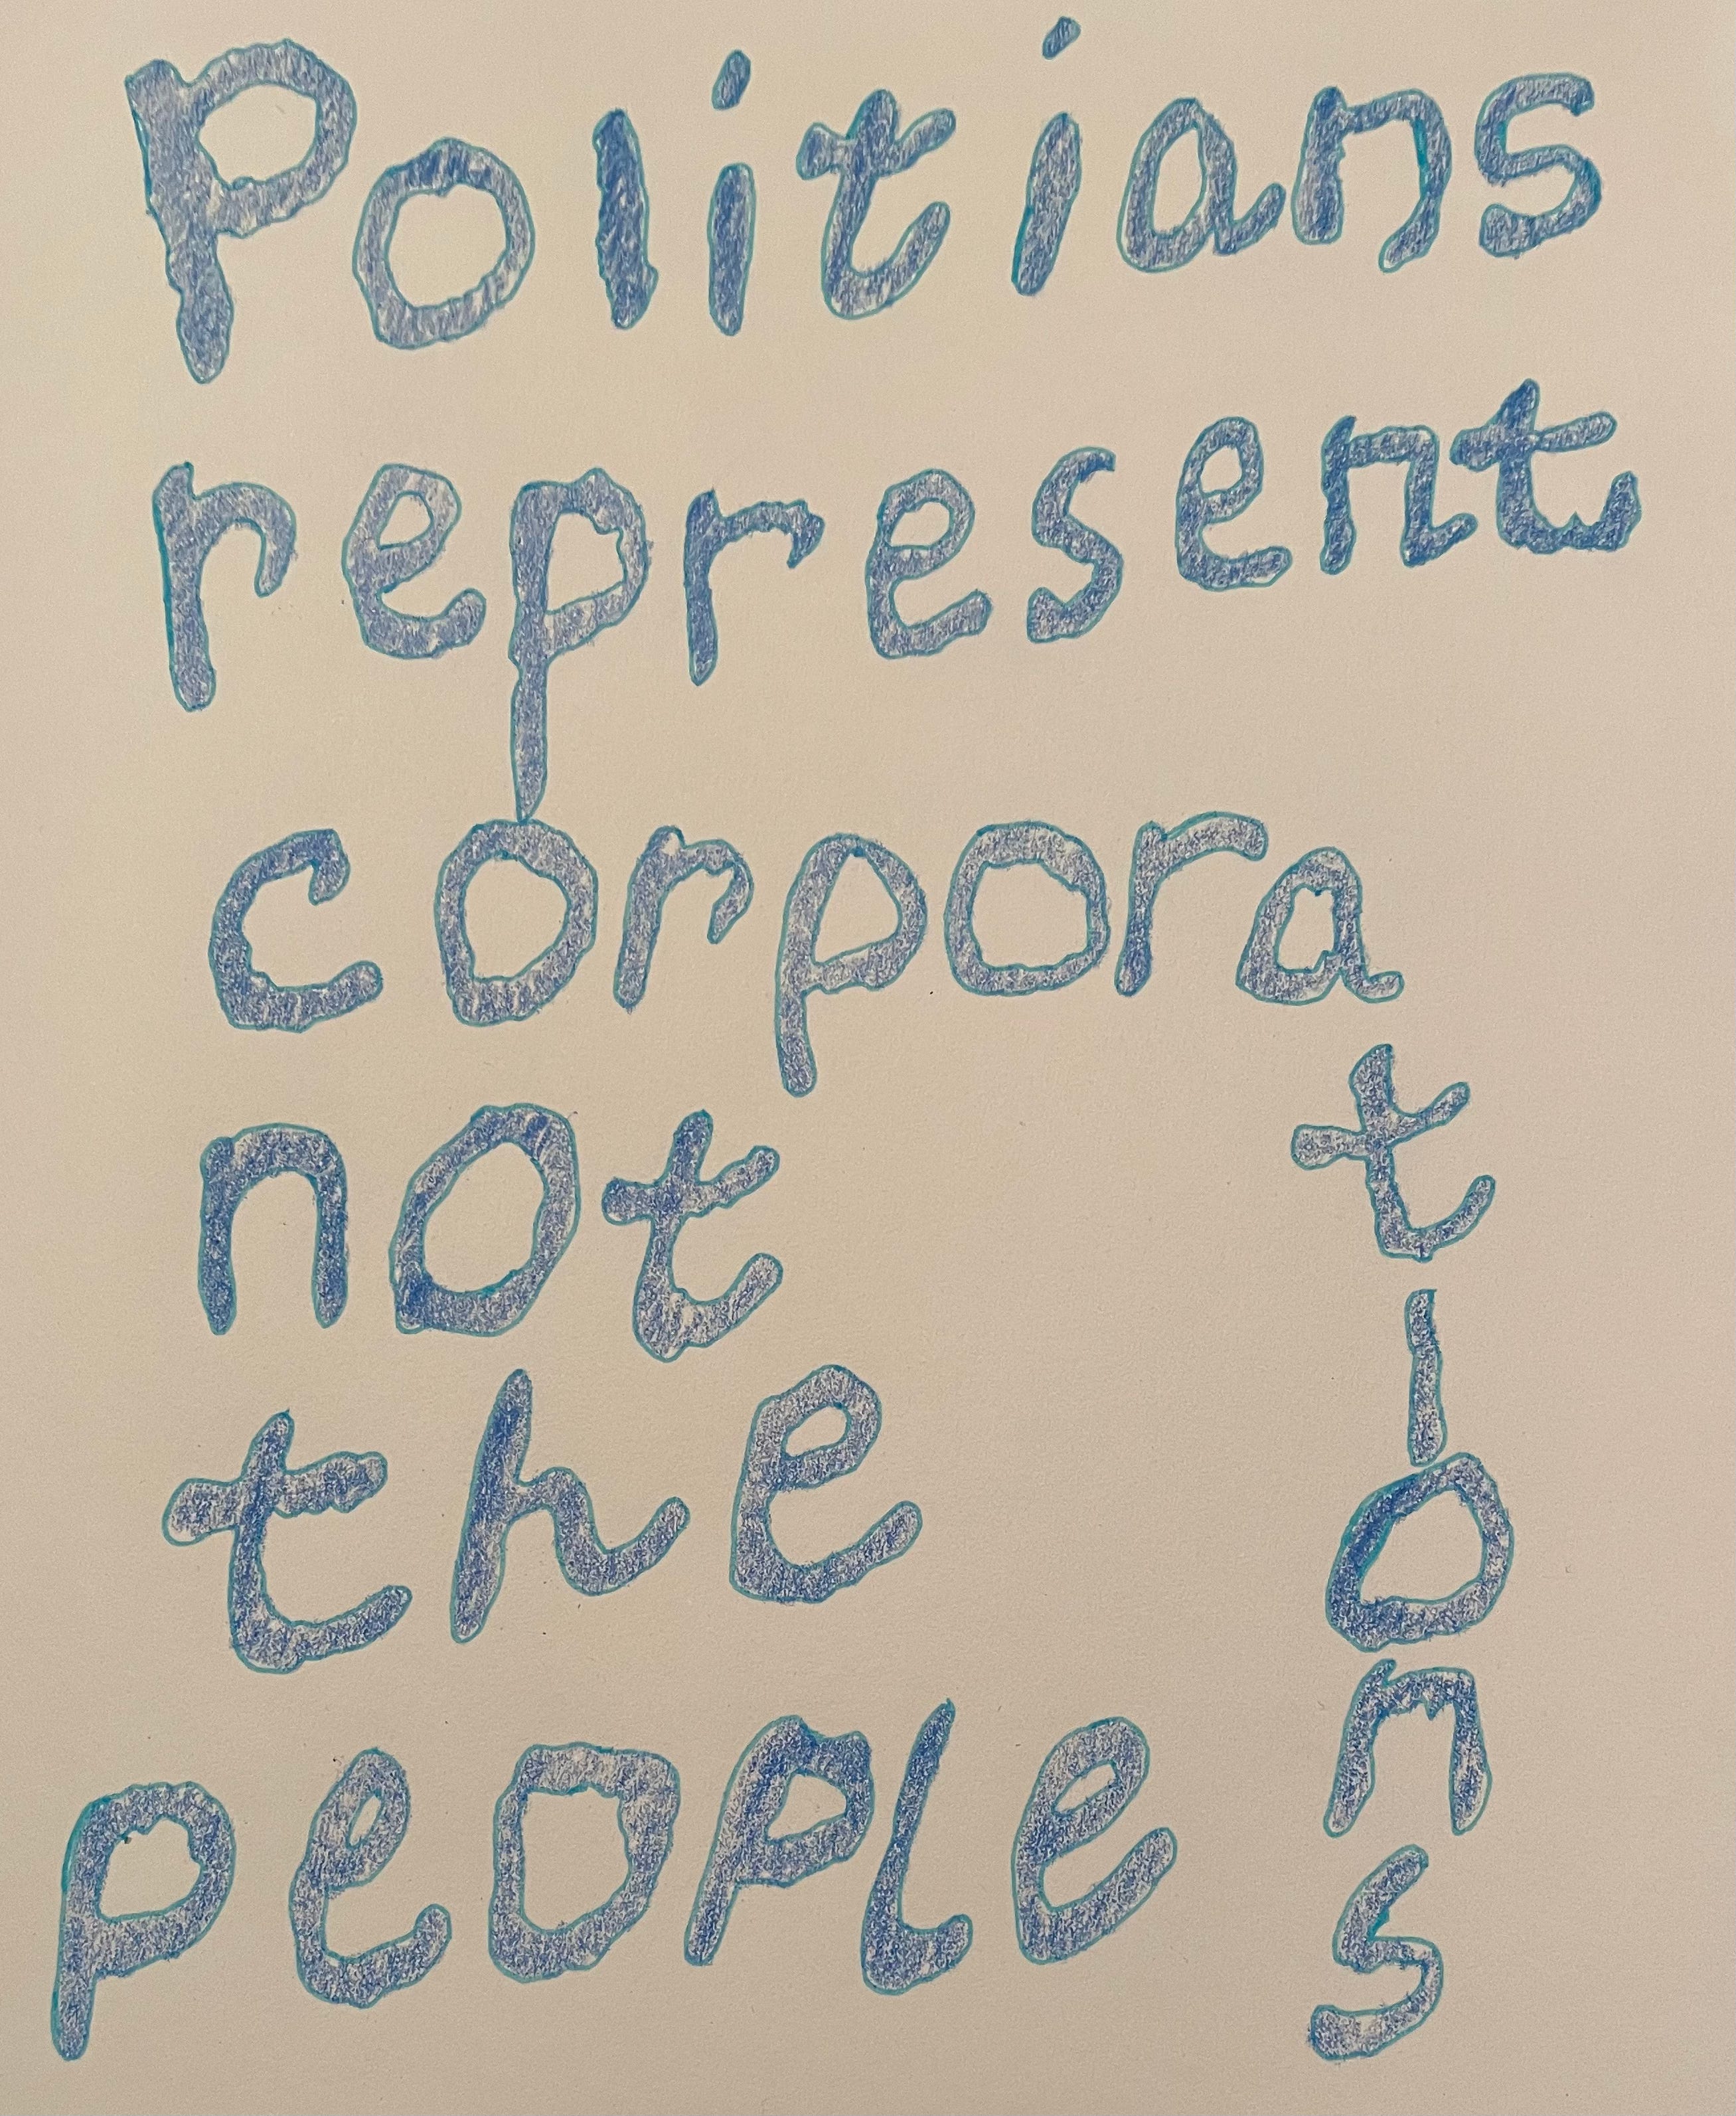 Politians
represent
corporations
not
the
people